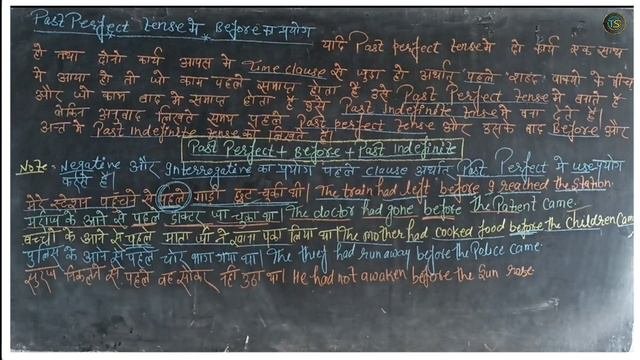 Past Perfect Tense में Before का प्रयोग
यदि Past perfect tense में दो कार्य एक साथ
हो तथा दोनो कार्य आपस में Time clause से जुड़ा हो अर्थात पहले शब्द वाक्यो के बीच
में आया हो तो जो काम पहले समाप्त होता है उसे Past Perfect Tense में बनाते है
और जो काम बाद में समाप्त होता है उसे Past Indefinite Tense में बना देते है।
लेकिन अनुवाद लिखते समय पहले Past perfect Tense और उसके बाद Before और
अन्त में Past Indefinite Tense को लिखते है।
Past Perfect + Before + Past Indefinite
Note:- Negative और Interrogative का प्रयोग पहले clause अर्थात Past Perfect में use प्रयोग
करते है।
मेरे स्टेशन पहुँचने से पहले गाड़ी छूट चुकी थी। The train had left before I reached the station.
मरीज के आने से पहले डॉक्टर जा चुका था। The doctor had gone before the Patient came.
बच्चों के आने से पहले माता जी ने खाना पका लिया था। The mother had cooked food before the children Came
पुलिस के आने से पहले चोर भाग गया था। The thief had run away before the Police came.
सूरज निकलने से पहले वह सोकर नहीं उठा था। He had not awaken before the Sun rose.
TS